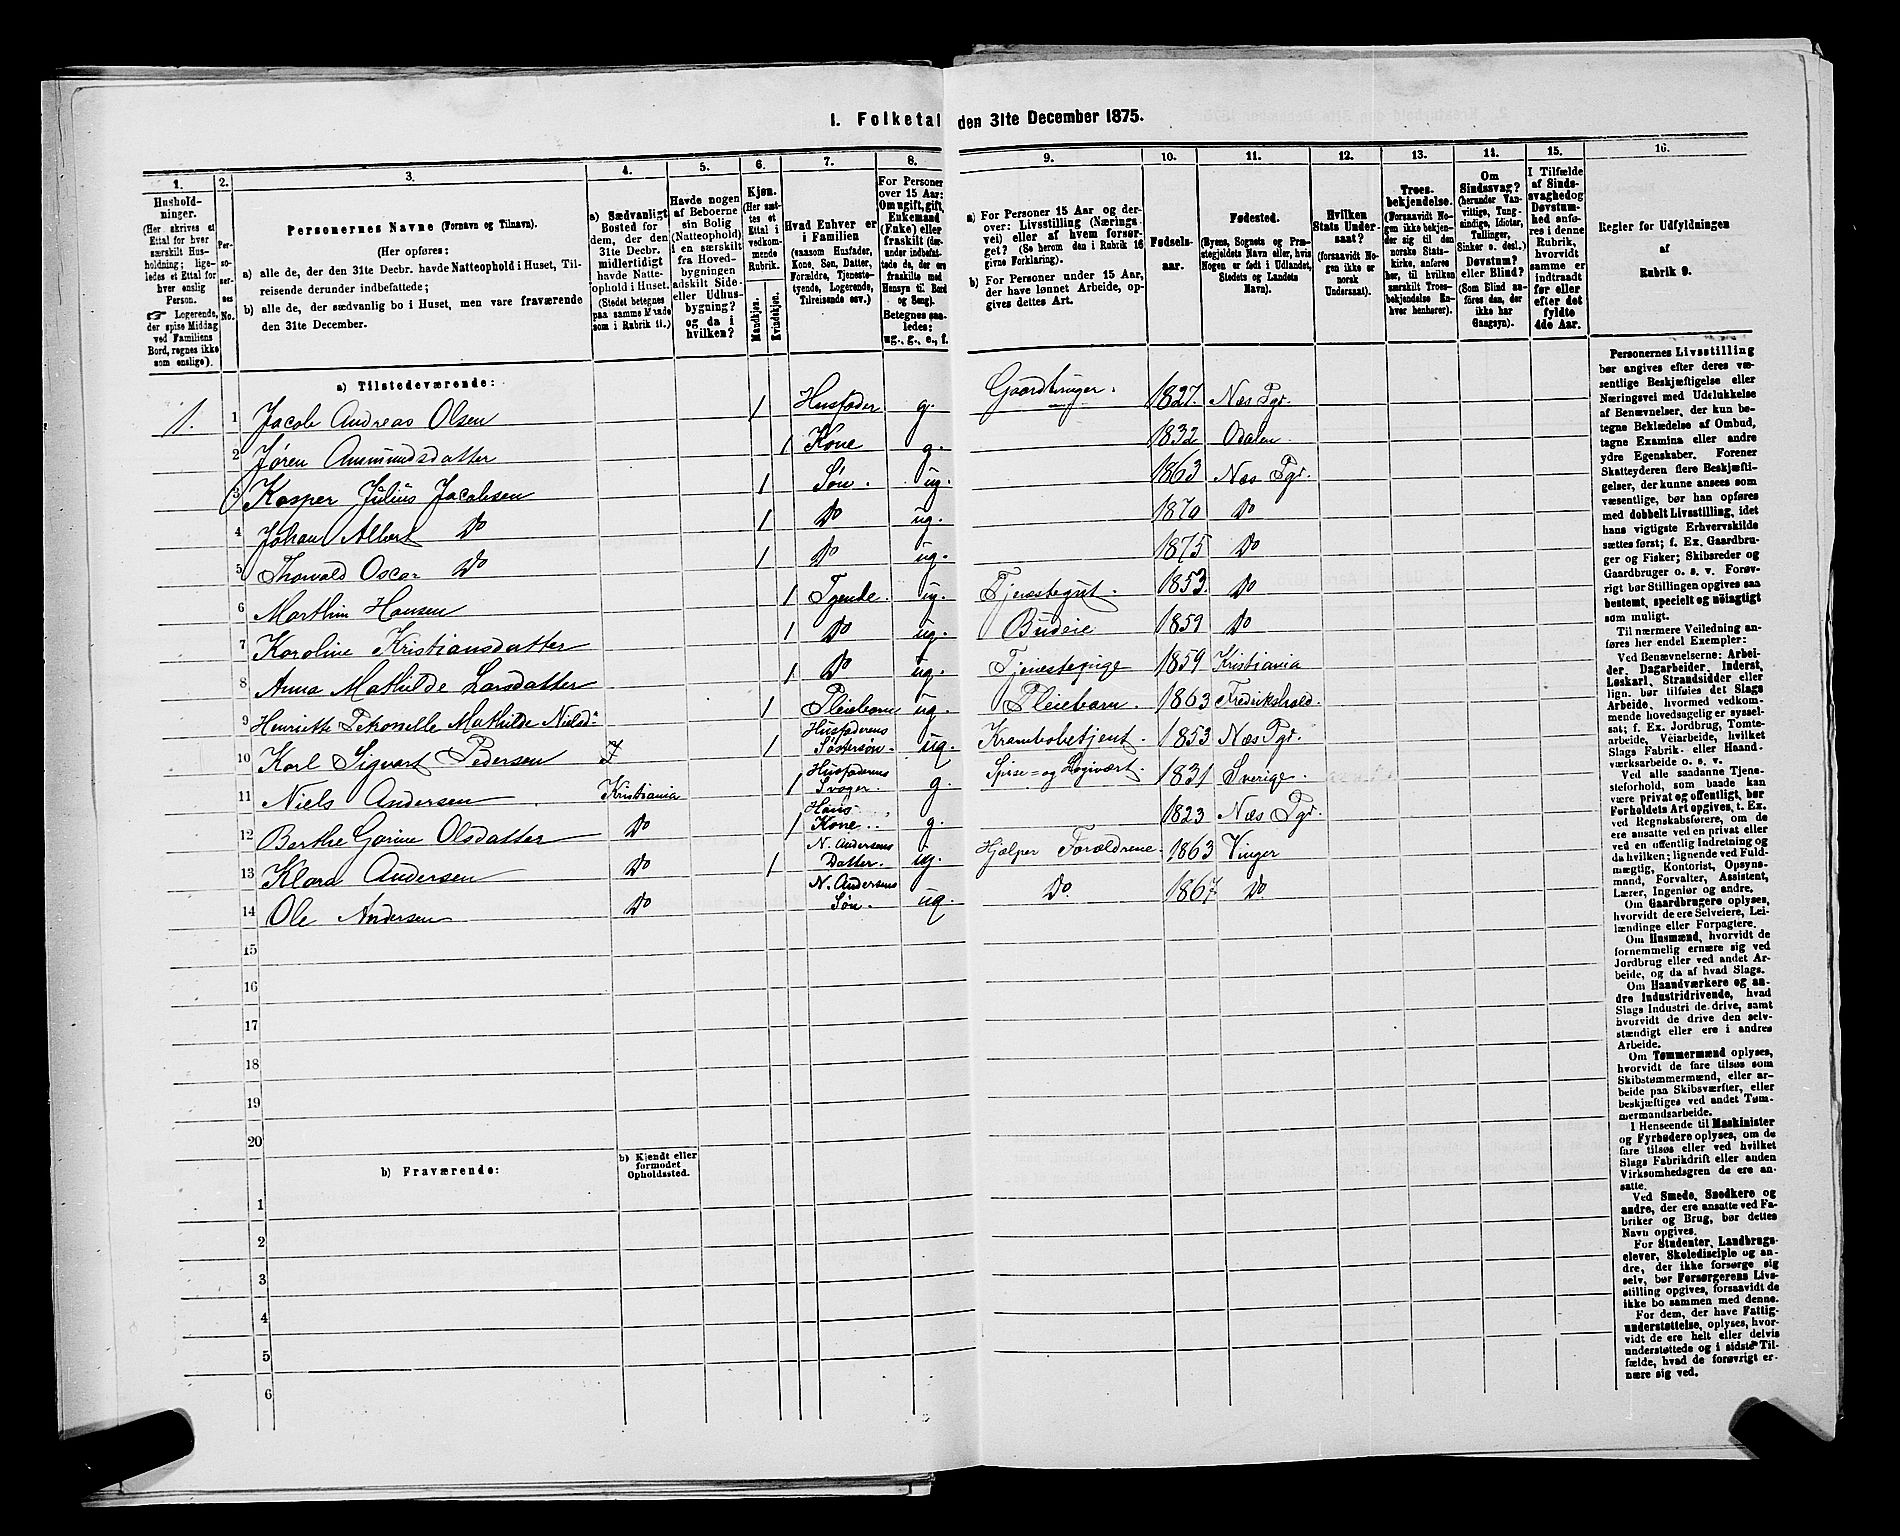 I. Folketal den 31te December 1875.
1. 2. 3. 4. 5. 6. 7. 8. 9. 10. 11. 12. 13. 14. 15. 16.
Husholdninger.
(Her skrives et
Ettal for hver
særskilt Husholdning; ligeledes et Ettal for
hver enslig
Person.
☞ Logerende,
der spise Middag
ved Familiens
Bord, regnes ikke
som enslige).
Personernes No.
Personernes Navne (Fornavn og Tilnavn).
(Her opføres:
a) alle de, der den 31te Decbr. havde Natteophold i Huset, Tilreisende derunder indbefattede;
b) alle de, der sædvanlig bo i Huset, men vare fraværende
den 31te December.
a) Sædvanligt
Bosted for
dem, der den
31te Decbr.
midlertidigt
havde Natteophold i Huset.
(Stedet betegnes
paa samme Maade
som i Rubrik 11.)
Havde nogen
af Beboerne
sin Bolig
(Natteophold)
i en særskilt
fra Hovedbygningen
adskilt Side-
eller Udhusbygning?
og da i
hvilken?
Kjøn.
(Her sættes et
Ettal i
vedkommende
Rubrik.
Mandkjøn.
Kvindekjøn.
Hvad Enhver er
i Familien
(saasom Husfader,
Kone, Søn, Datter,
Forældre, Tjenestetyende, Logerende,
Tilreisende osv.)
For Personer
over 15 Aar:
Om ugift, gift,
Enkemand
(Enke) eller
fraskilt (derunder indbefattede de, der ere
fraskilte med
Hensyn til Bord
og Seng).
Betegnes saaledes:
ug., g., e., f.
a) For Personer 15 Aar og derover: Livsstilling (Næringsvei) eller af hvem forsørget? (Se herom den i Rubrik 16
givne Forklaring).
b) For Personer under 15 Aar,
der have lønnet Arbeide, opgives dettes Art.
Fødselsaar.
Fødested.
(Byens, Sognets og Præstegjeldets Navn eller, hvis
Nogen er født i Udlandet,
Stedets og Landets
Navn).
Hvilken
Stats Undersaat?
(forsaavidt Nogen ikke er
norsk
Undersaat).
Troesbekjendelse.
(Forsaavidt Nogen ikke bekjender sig til den
norske Statskirke, anføres
her, til hvilken
særskilt Troesbekjendelse Enhver henhører).
Om
Sindssvag?
(herunder Vanvittige, Tungsindige, Idioter,
Tullinger,
Sinker o. desl.)
Døvstum?
eller Blind?
(Som Blind anføres den, der
ikke har
Gangsyn).
I Tilfælde
af Sindssvaghed og
Døvstumhed anføres i denne
Rubrik,
hvorvidt
samme er
indtraadt
før eller
efter det
fyldte
4de Aar.
Regler for Udfyldningen
af
Rubrik 9.
a) Tilstedeværende:
1. 1 Jacob Andreas Olsen 1 Husfader g. Gaardbruger. 1827. Næs Pgd.
2 Jøren Amundsdatter 1 Kone g. 1832 Odalen.
3 Kasper Julius Jacobsen 1 Søn. ug. 1863 Næs Pgd.
4 Johan Albert Do 1 Do ug. 1870 Do
5 Thorvald Oscar Do 1 Do ug. 1875 Do
6 Marthin Hansen 1 Tyende. ug. Tjenestegut. 1853. Do
7 Karoline Kristiansdatter 1 Do ug. Budeie 1859 Do
8 Anna Mathilde Larsdatter 1 Do ug. Tjenestepige 1859 Kristiania
9 Henriette Mathilde Nielsd: 1 Pleiebarn ug. Pleiebarn. 1863 Fredrikshald.
10 Karl Sigvart Pedersen 1 Husfaderens Søstersøn. ug. Krambobetjent. 1853 Næs Pgd.
11 Niels Andersen Kristiania 1 Husfaderens Svoger. g. Spise= og Logivært. 1831 Sverige.
12 Berthe Gorine Olsdatter Do 1 Hans Kone. g. 1823 Næs Pgd.
13 Klara Andersen Do 1 N. Andersens Datter. ug. Hjælper Forældrene. 1863 Vinger
14 Ole Andersen Do N. Andersens Søn. ug. Do. 1867 Do.
15
16
17
18
19
20
b) Fraværende:
b) Kjendt eller
formodet
Opholdssted.
1
2
3
4
5
6
Personernes Livsstilling
bør angives efter deres væsentlige Beskjæftigelse eller
Næringsvei med Udelukkelse
af Benævnelser, der kun betegne Beklædelse af Ombud,
tagne Examina eller andre
ydre Egenskaber. Forener
Skatteyderen flere Beskjæftigelser, der kunne ansees som
væsentlige, bør han opføres
med dobbelt Livsstilling, idet
hans vigtigste Erhvervskilde
sættes først; f. Ex. Gaardbruger og Fisker; Skibsreder og
Gaardbruger o. s. v. Forøvrigt bør Stillingen opgives saa
bestemt, specielt og nøiagtigt
som muligt.
Til nærmere Veiledning anføres her endel Exempler:
Ved Benævnelserne: Arbeider, Dagarbeider, Inderst,
Løskarl, Strandsidder eller
lign. bør tilføies det Slags
Arbeide, hvormed vedkommende hovedsagelig er sysselsat; f. Ex. Jordbrug, Tomtearbeide, Veiarbeide, hvilket
Slags Fabrik- eller Haandværksarbeide o. s. v.
Ved alle saadanne Tjenesteforhold, som baade kan
være privat og offentligt, bør
Forholdets Art opgives, t. Ex.
ved Regnskabsførere, om de
ere ansatte ved en privat eller
ved en offentlig Indretning og
da hvilken; lignende ved Fuldmægtig, Kontorist, Opsynsmand, Forvalter, Assistent,
Lærer, Ingeniør og andre.
Om Gaardbrugere oplyses,
hvorvidt de ere Selveiere, Leilændinge eller Forpagtere.
Om Husmænd, hvorvidt de
fornemmelig ernære sig ved
Jordbrug eller ved andet Arbeide, og da af hvad Slags.
Om Haandværkere og andre Industridrivende, hvad
Slags Industri de drive, samt
hvorvidt de drive den selvstændigt eller ere i andres
Arbeide.
Om Tømmermænd oplyses,
hvorvidt de fare tilsøs som
Skibstømmermænd, eller arbeide paa Skibsværfter, eller
beskjæftiges ved andet Tømmermandsarbeide.
I Henseende til Maskinister
og Fyrbødere oplyses, om de
fare tilsøs eller ved hvilket
Slags Fabrikdrift eller anden
Virksomhedsgren de ere ansatte.
Ved Smede, Snedkere og
andre, der ere ansatte ved Fabriker og Brug, bør dettes
Navn opgives.
For Studenter, Landbrugselever, Skoledisciple og andre, der ikke forsørge sig
selv, bør Forsørgerens Livsstilling opgives, forsaavidt de
ikke bo sammen med denne.
For dem, der have Fattigunderstøttelse, oplyses, hvorvidt de ere helt eller delvis
understøttede og i sidste Tilfælde, hvad de forøvrigt ernære sig ved.